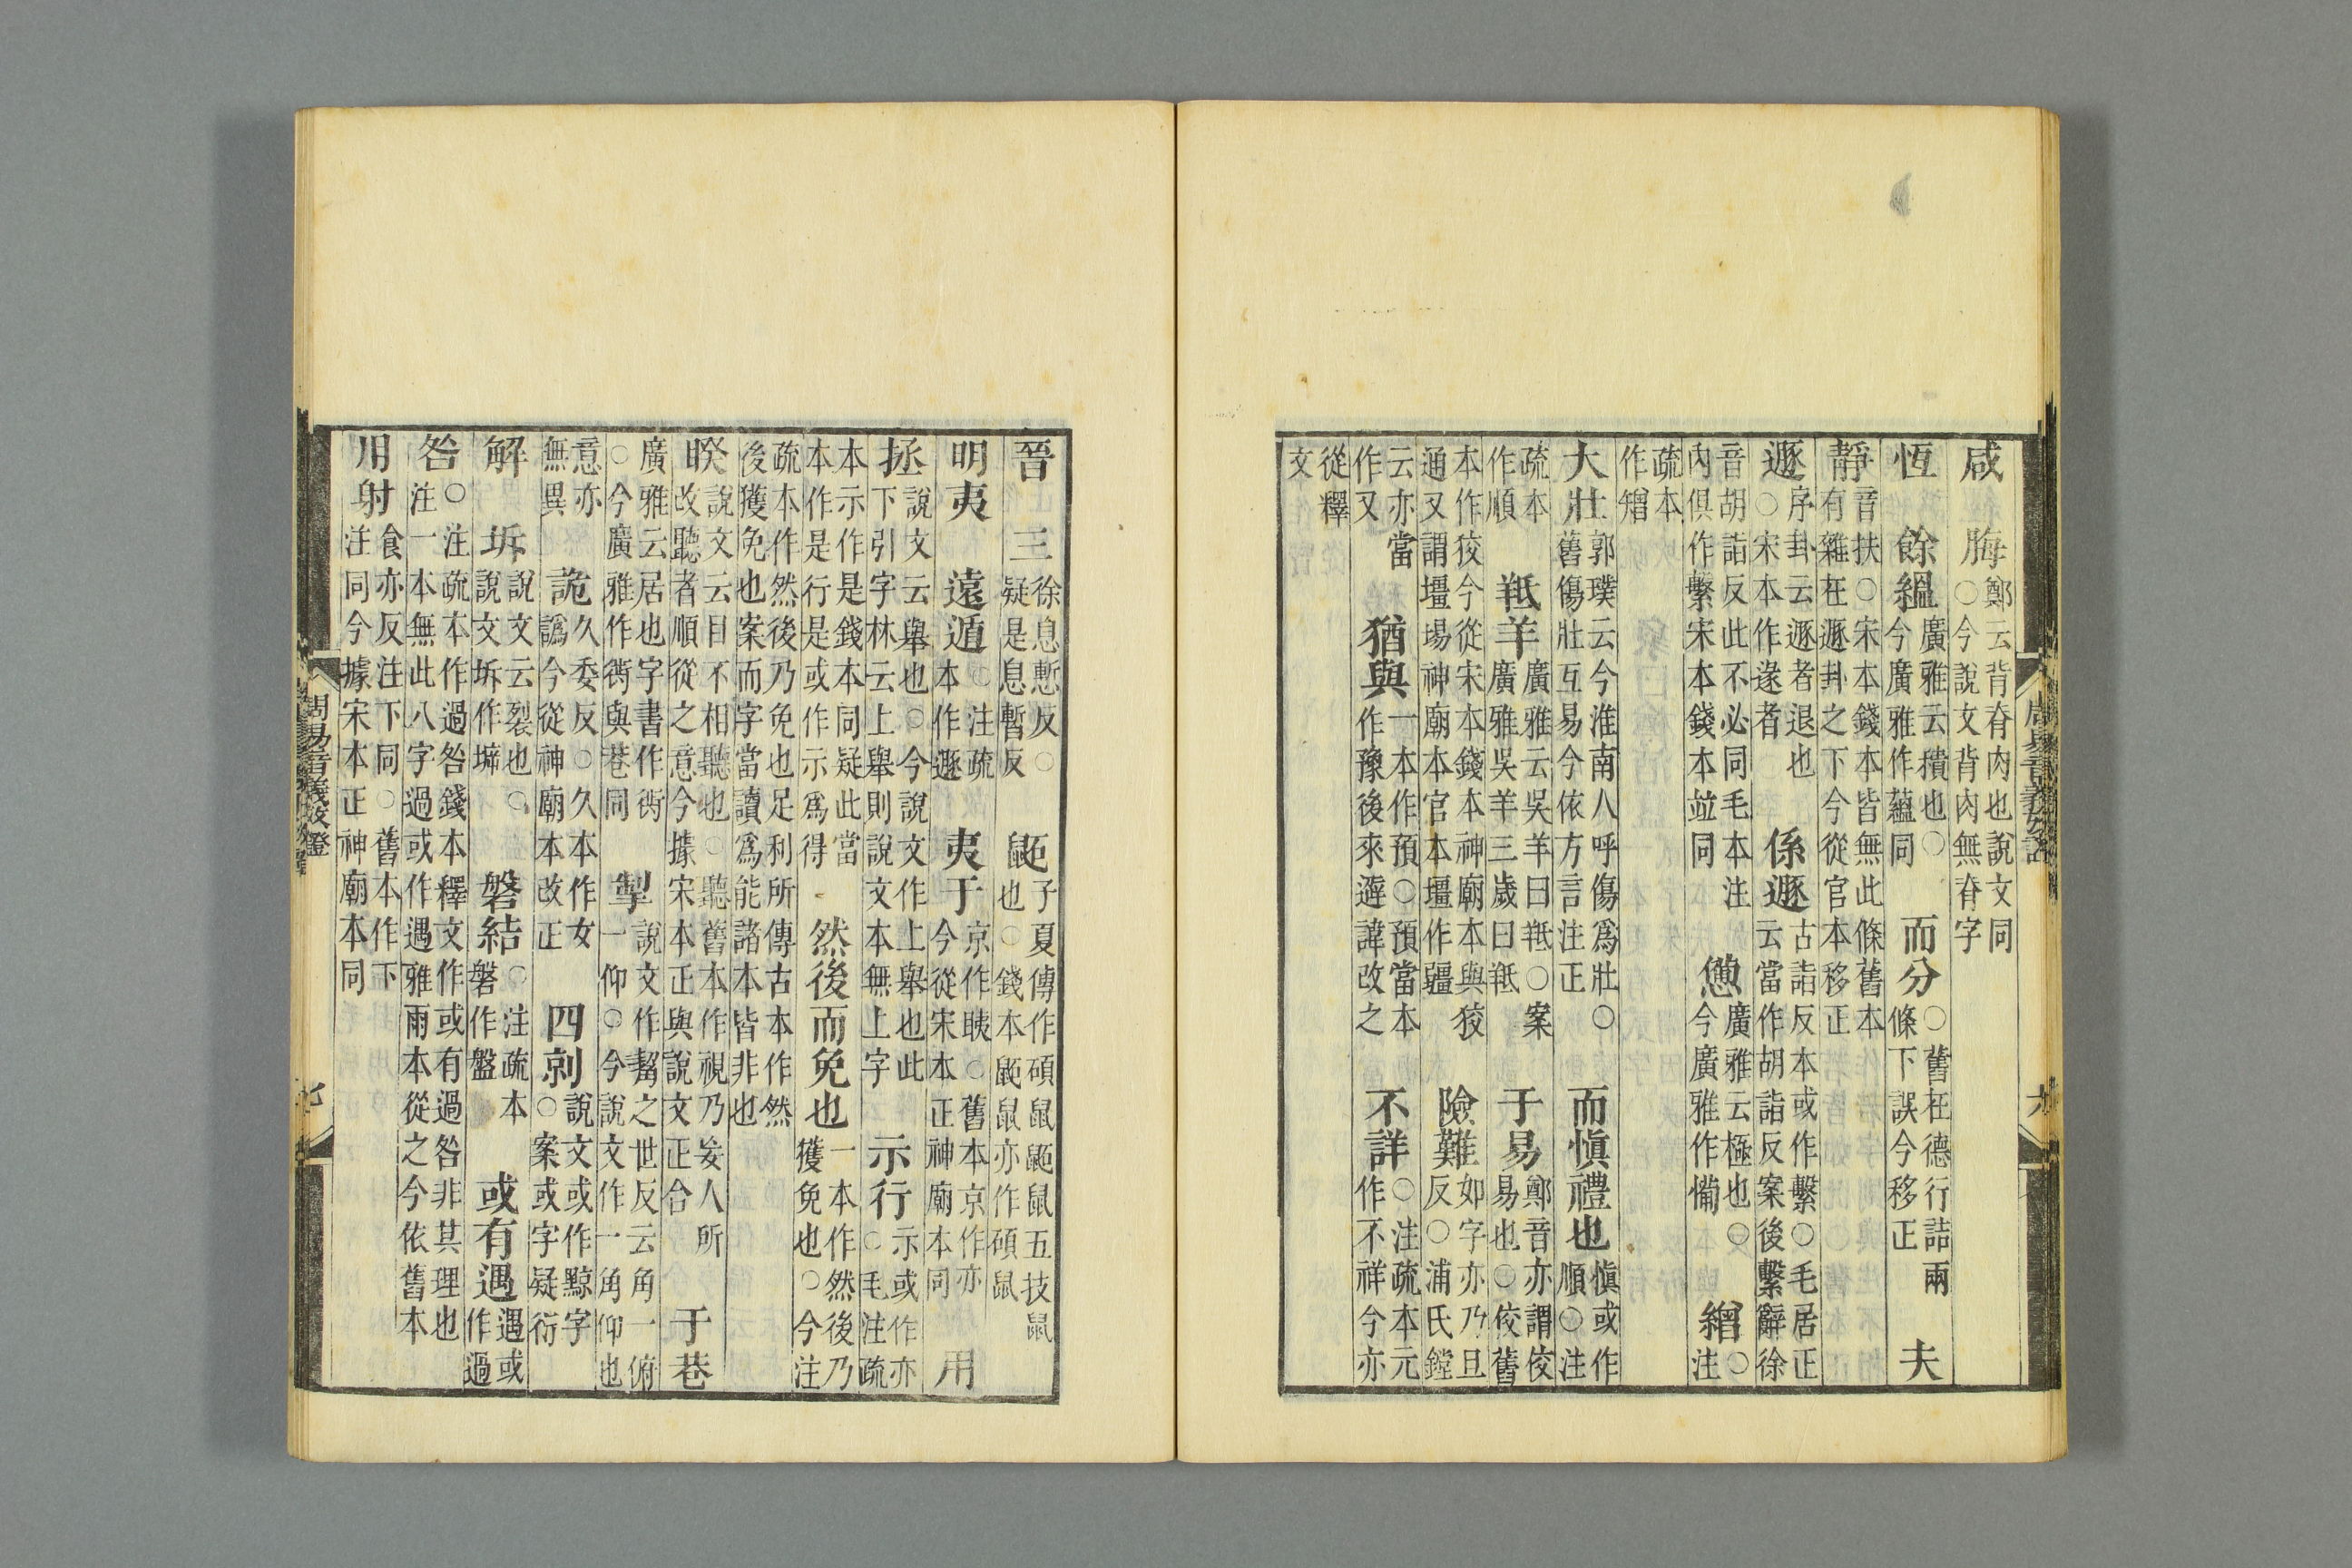 咸　脢鄭云背脊肉也說文同○今說文背肉無脊字
恆　餘縕廣雅云積也○今廣雅作蘊同　而分○舊在德行詰兩條下誤今移正　夫
靜音扶○宋本錢本皆無此條舊本有雜在遯卦之下今從官本移正
遯序卦云遯者退也○宋本作遂者　係遯古詣反本或作繫○毛居正云當作胡詣反案後繫辭徐
音胡詣反此不必同毛本注內俱作繫宋本錢本並同　憊廣雅云極也○今廣雅作㤳　繒○注
疏本作矰
大壯郭璞云今淮南人呼傷爲壯○舊傷壯互易今依方言注正　而愼禮也愼或作順○注
疏本作順　羝羊廣雅云吳羊曰羝○案廣雅吳羊三歲曰羝　于易鄭音亦謂佼易也○佼舊
本作狡今從宋本錢本神廟本與狡通又謂壇埸神廟本官本壇作疆　險難如字亦乃旦反○浦氏鏜
云亦當作又　猶與一本作預○預當本作豫後來避諱改之　不詳○注疏本元作不祥今亦
從釋文
晉　三徐息慙反○疑是息暫反　鼫子夏傳作碩鼠鼫鼠五技鼠也○錢本鼫鼠亦作碩鼠
明夷　遠遁○注疏本作遯　夷于京作眱○舊本京作亦今從宋本正神廟本同　用
拯說文云舉也○今說文作上舉也此下引字林云上舉則說文本無上字　示行示或作亦○毛注疏
本示作是錢本同疑此當本作是行是或作示爲得　然後而免也一本作然後乃獲免也○今注
疏本作然後乃免也足利所傳古本作然後獲免也案而字當讀爲能諸本皆非也
睽說文云目不相聽也○聽舊本作視乃妄人所改聽者順從之意今據宋本正與說文正合　于巷
廣雅云居也字書作衖○今廣雅作衖與巷同　掣說文作觢之世反云角一俯一仰○今說文作一角仰也
意亦無異　詭久委反○久本作女譌今從神廟本改正　四剠說文或作黥字○案或字疑衍
解　坼說文云裂也○說文坼作㙤　磐結○注疏本磐作盤　或有遇遇或作過
咎○注疏本作過咎錢本釋文作或有過咎非其理也注一本無此八字過或作遇雅雨本從之今依舊本
用射食亦反注下同○舊本作下注同今據宋本正神廟本同